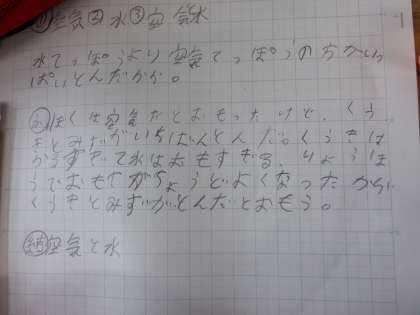 ①空気②水③空気水
水てっぽうより空気てっぽうの方がいっ
ぱいとんだから。
ぼくは空気だとおもったけど、くう
きとみずがいちばんとんだ。くうきは
かるすぎて水はおもすぎる、りょうほ
うでおもてがちょうどよくなったから
くうきとみずがとんだとおもう。
結空気と水